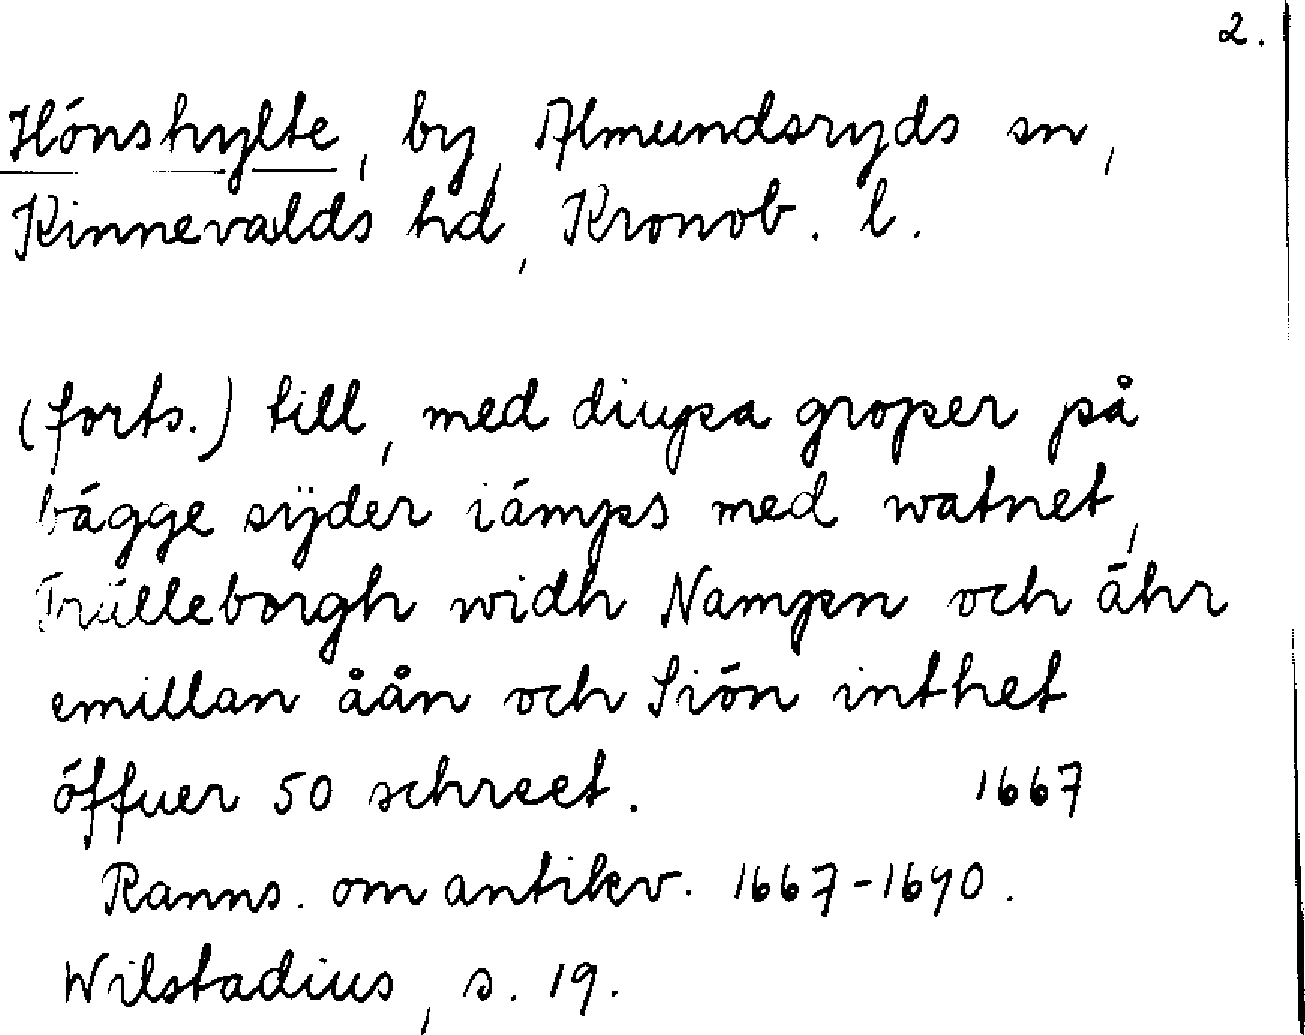 2.
Hónshylte, by, Almundsryds sn,
Kinnevalds hd, Kronob. l.
(forts.) till, med diupa groper på
bágge syder iámps med watnet,
Trälleborgh widh Nampn och áhr
emillan åån och Sión inthet
óffuer 50 schreet. 1667
Ranns. om antikv. 1667-1690.
Wilstadius, s. 19.